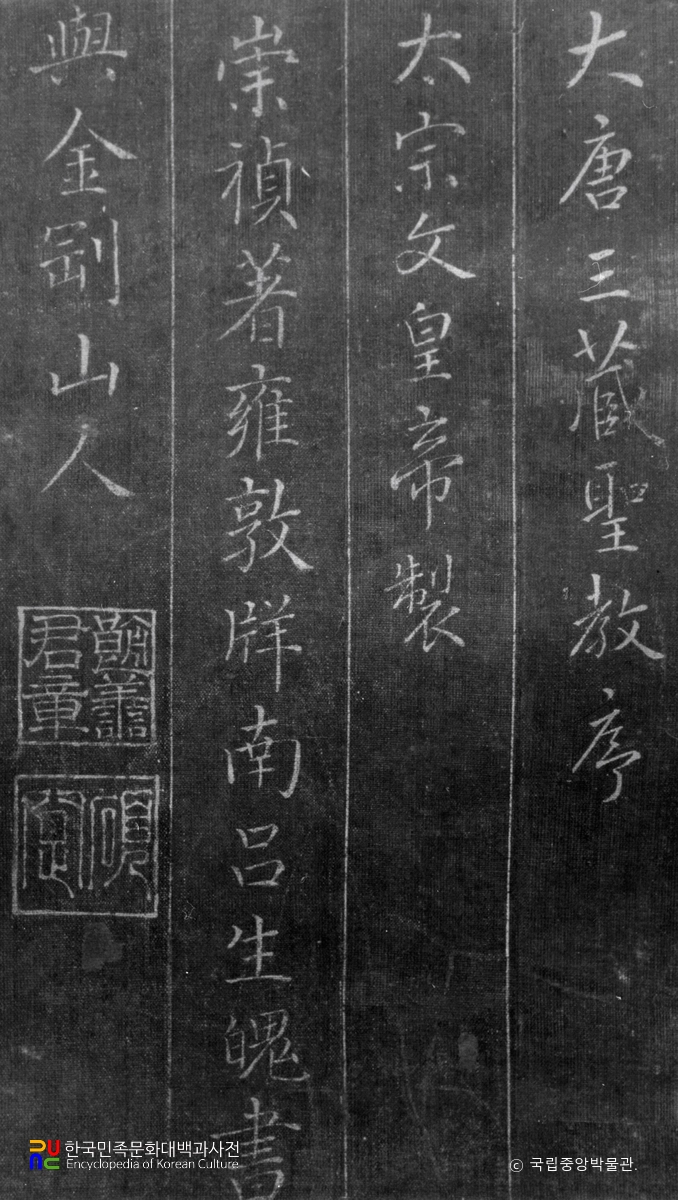 大唐三藏聖教序
太宗文皇帝製
崇禎著雍敦牂南呂生魄書
與金剛山人
善君章
한국민족문화대백과사전
Encyclopedia of Korean Culture
ⓒ 국립중앙박물관.